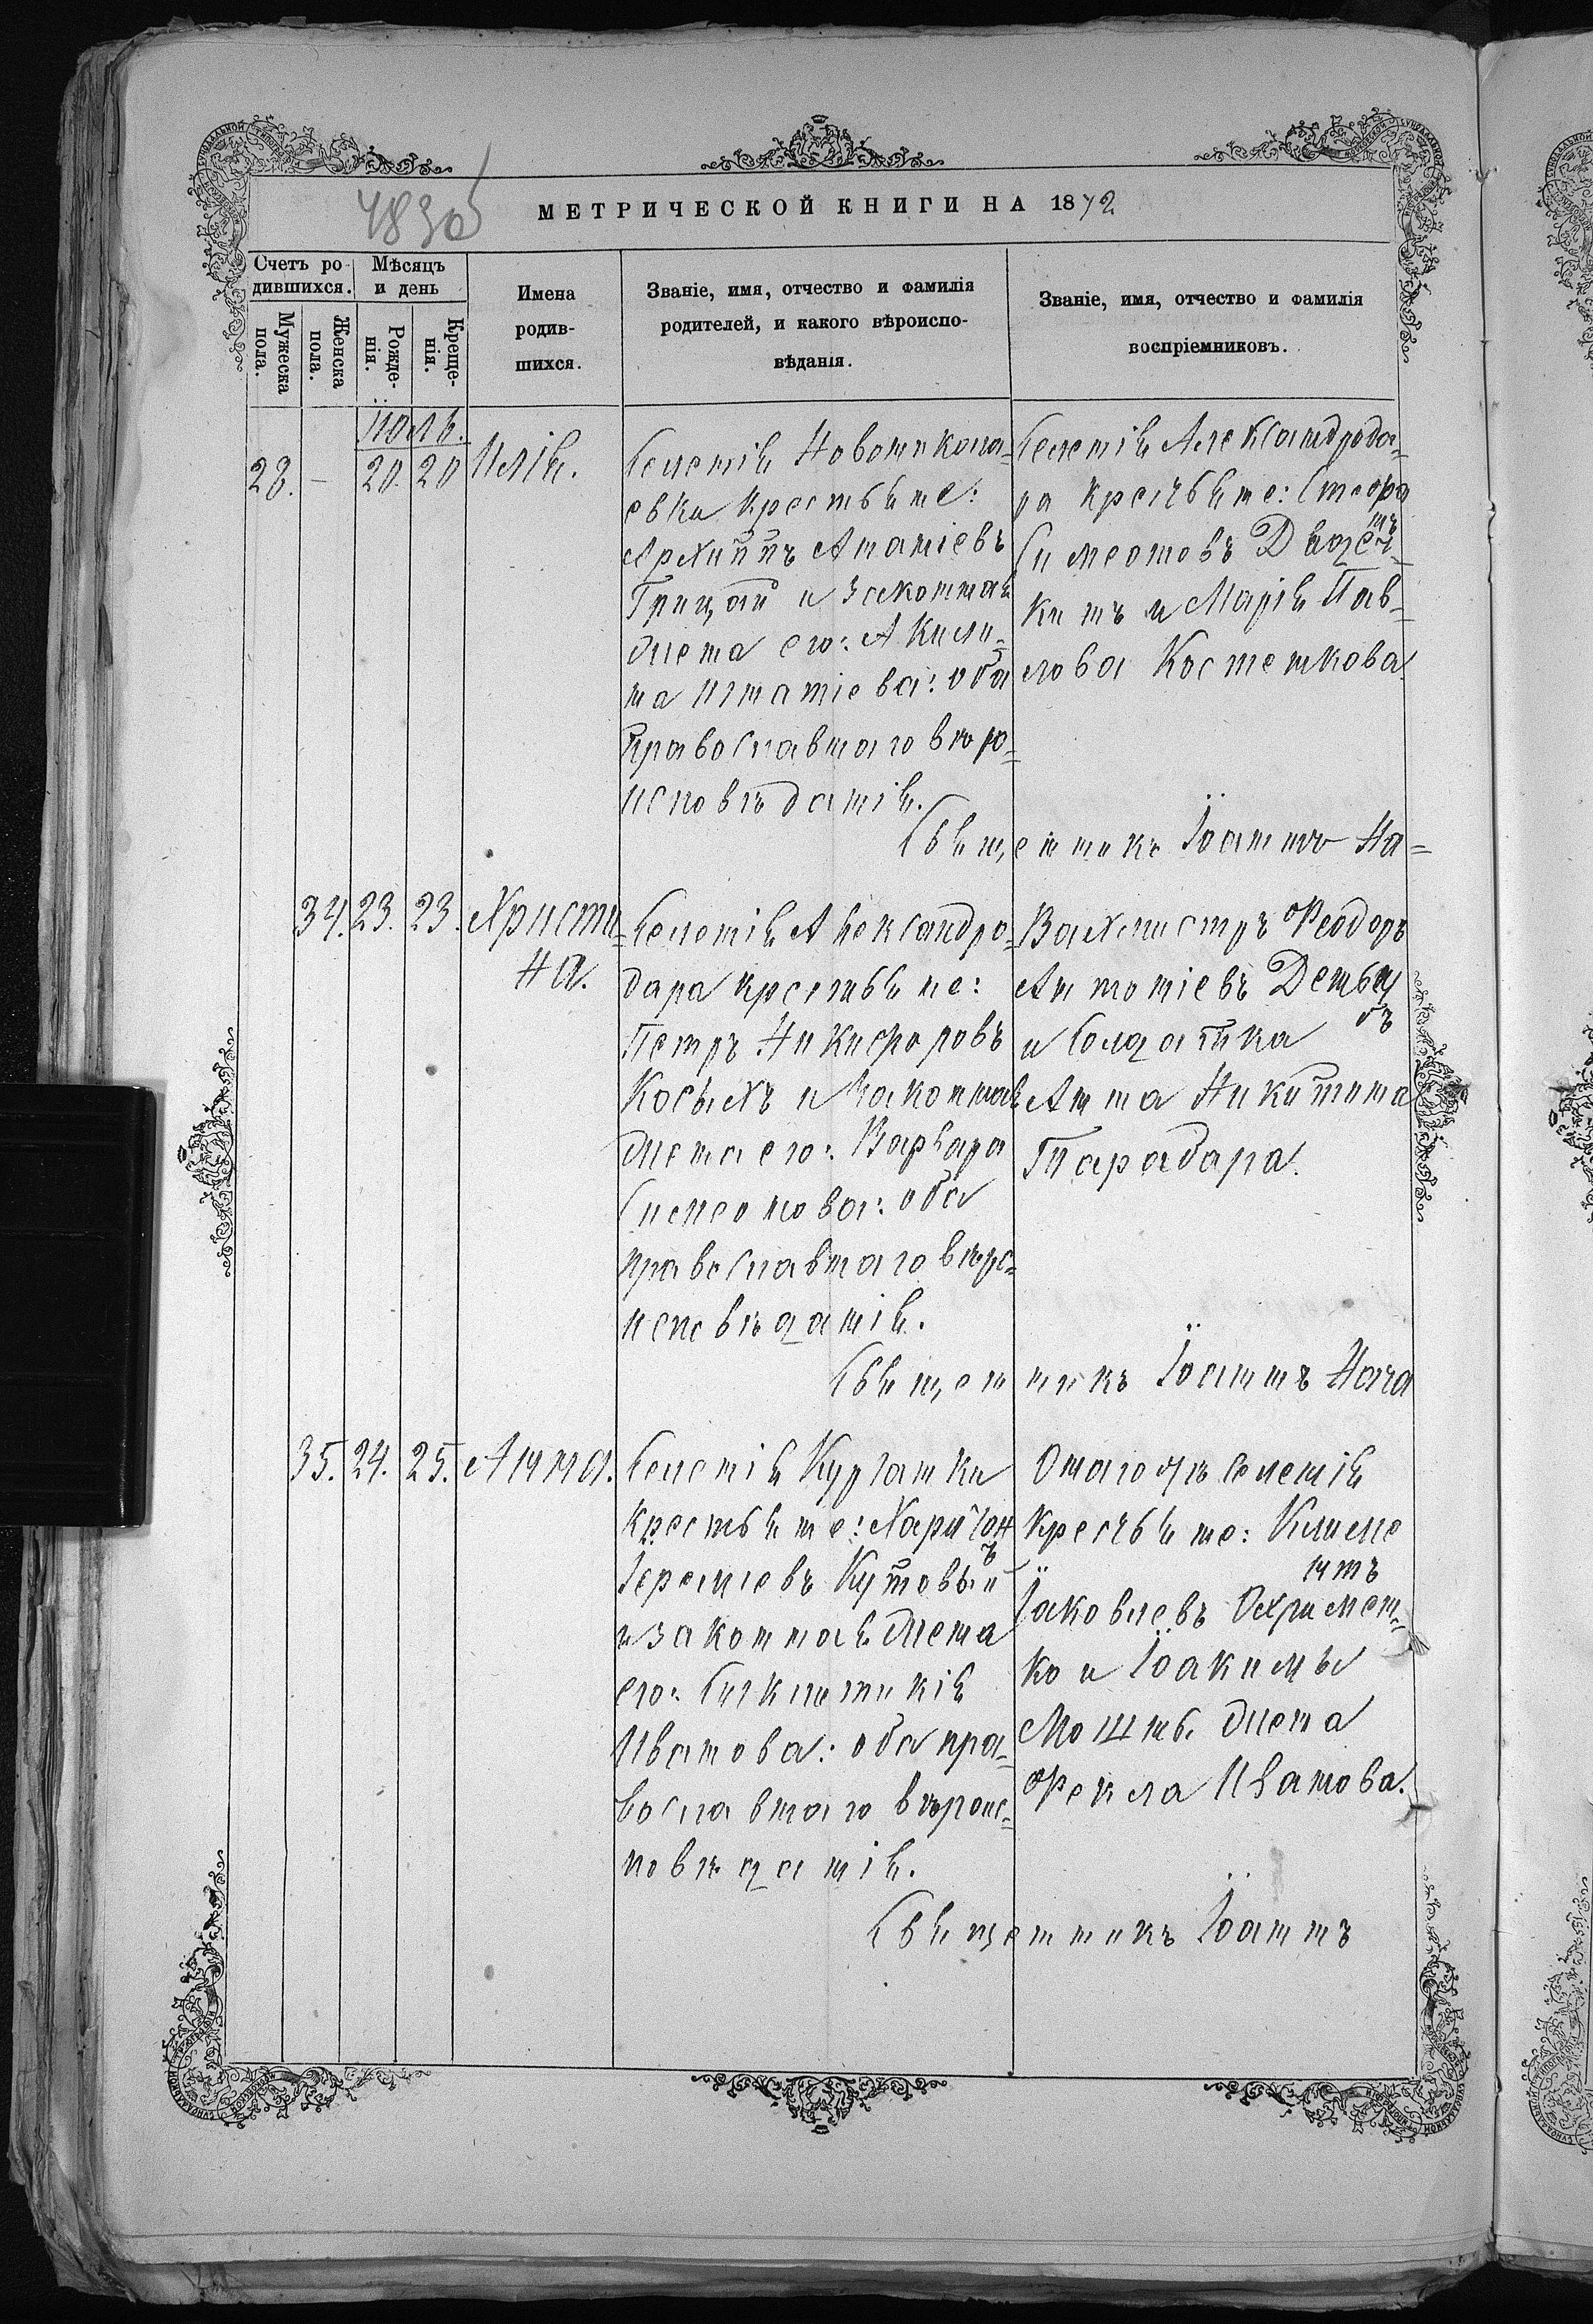 483об
МЕТРИЧЕСКОЙ КНИГИ НА 1872
Счетъ ро-
дившихся.
Мѣсяцъ
и день
Мужеска
пола.
Женска
пола.
Рожде-
нія.
Креще-
нія.
Имена
родив-
шихся.
Званіе, имя, отчество и фамилія
родителей, и какого вѣроиспо-
вѣданія.
Званіе, имя, отчество и фамилія
воспріемниковъ.
Іюль.
28. - 20. 20 Илія.
Селенія Новоникола-
евки крестьяне:
Архиппъ Ананіевъ
Грицай и законная
жена его: Акили-
на Игнатіева: оба
православнаго вѣро-
исповѣданія.
Селенія Александрода-
ра крестьяне:
Симеоновъ
кинъ и Марія Пав-
лова Костенкова.
Священникъ Іоаннъ На-
34. 23. 23. Христи-
на.
Селенія Александро-
дара крестьяне:
Петръ Никифоровъ
Косыхъ и законная
жена его: Варвара
Симеонова: оба
православнаго вѣро-
исповѣданія.
Вахмистръ Ѳеодоръ
Антоніевъ
и Солдатка
Анна Никитина
Тарадара.
Священникъ Іоаннъ Нача
35. 24. 25. Анна.
Селенія Курганки
крестьяне: Харитонъ
Іереміевъ Кутовый
и законная жена
его: Сигклитикія
Иванова: оба пра-
вославнаго вѣроис-
повѣданія.
Онагожъ селенія
крестьяне: Климентъ
Іаковлевъ Охримен-
ко и Іоакима
жена
Ѳекла Иванова.
Священникъ Іоаннъ